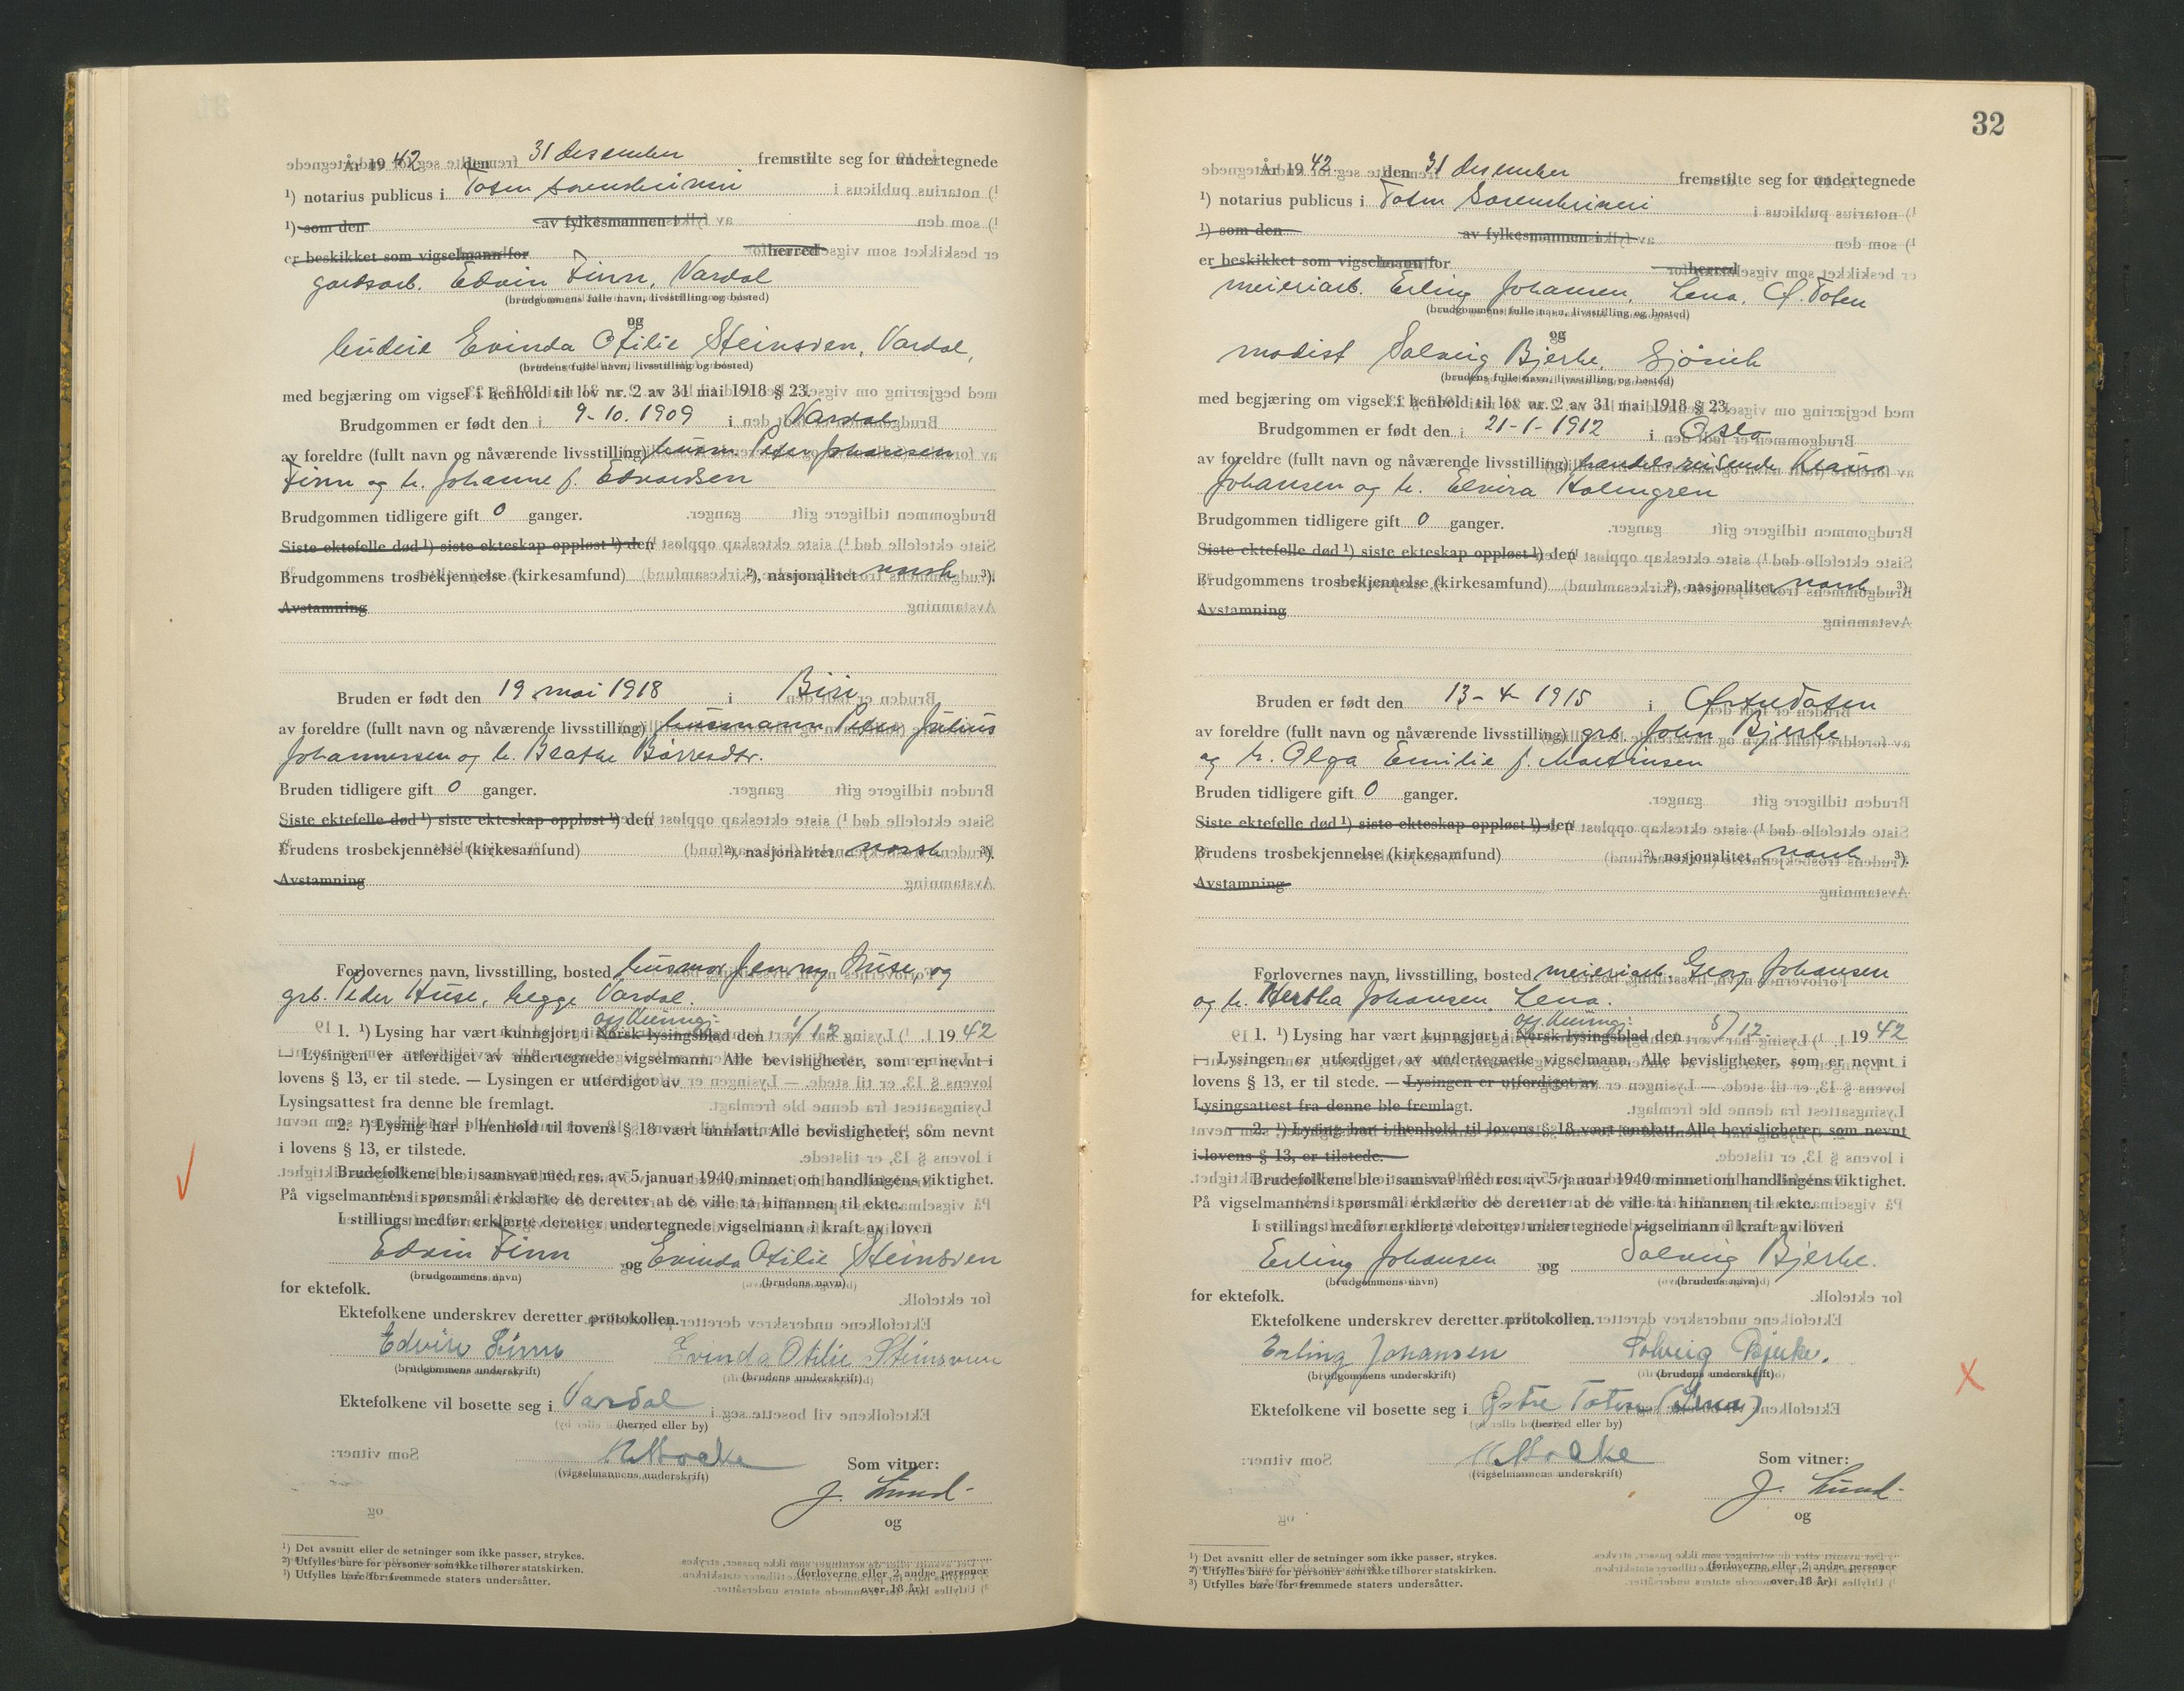 År 19 42 den 31 desember fremstilte seg for undertegnede
¹) notarius publicus i Toten sorenskriveri
¹) som den av fylkesmannen i
er beskikket som vigselmann for herred
gardsarb. Edvin Finn, Vardal
(brudgommens fulle navn, livsstilling og bosted)
og
Evinda Otilie Steinsven, Vardal,
(brudens fulle navn, livsstilling og bosted)
med begjæring om vigsel i henhold til lov nr. 2 av 31 mai 1918 § 23.
Brudgommen er født den 9-10.1909 i Vardal
av foreldre (fullt navn og nåværende livsstilling) husm. Peder Johansen
Finn og h. Johanne f. Edvardsen
Brudgommen tidligere gift 0 ganger.
Siste ektefelle død ¹) siste ekteskap oppløst ¹) den
Brudgommens trosbekjennelse (kirkesamfund) ²), nasjonalitet norsk ³).
Avstamning
Bruden er født den 19 mai 1918 i Biri
av foreldre (fullt navn og nåværende livsstilling) husmann Peder Julius
Johannersen og h. Beathe Børresdtr.
Bruden tidligere gift 0 ganger.
Siste ektefelle død ¹) siste ekteskap oppløst ¹) den
Brudens trosbekjennelse (kirkesamfund) ²), nasjonalitet norsk ³).
Avstamning
Forlovernes navn, livsstilling, bosted husmor Jenny Huse, og
grb. Peder Huse, begge Vardal.
off. kunngj.
1. ¹) Lysing har vært kunngjort i Norsk lysingsblad den 1/12 19 42
— Lysingen er utferdiget av undertegnede vigselmann. Alle bevisligheter, som er nevnt i
lovens § 13, er til stede. — Lysingen er utferdiget av
Lysingsattest fra denne ble fremlagt.
2. ¹) Lysing har i henhold til lovens § 18 vært unnlatt. Alle bevisligheter, som nevnt
i lovens § 13, er tilstede.
Brudefolkene ble i samsvar med res. av 5 januar 1940 minnet om handlingens viktighet.
På vigselmannens spørsmål erklærte de deretter at de ville ta hinannen til ekte.
I stillings medfør erklærte deretter undertegnede vigselmann i kraft av loven
Edvin Finn og Evinda Otilie Steinsven
(brudgommens navn) (brudens navn)
for ektefolk.
Ektefolkene underskrev deretter protokollen.
Edvin Finn Evinda Otilie Steinsven
(brudgommens underskrift) (brudens underskrift)
Ektefolkene vil bosette seg i Vardal
(herred eller by)
Som vitner:
(vigselmannens underskrift)
J. Lund
og
¹) Det avsnitt eller de setninger som ikke passer, strykes.
²) Utfylles bare for personer som ikke tilhører statskirken.
³) Utfylles bare for fremmede staters undersåtter.
(forloverne eller 2 andre personer
over 18 år)
32
År 19 42 den 31 desember fremstilte seg for undertegnede
¹) notarius publicus i Toten Sorenskriveri
¹) som den av fylkesmannen i
er beskikket som vigselmann for herred
meieriarb. Erling Johansen, Lena, Ø. Toten
(brudgommens fulle navn, livsstilling og bosted)
og
modist Solveig Bjerke, Gjøvik
(brudens fulle navn, livsstilling og bosted)
med begjæring om vigsel i henhold til lov nr. 2 av 31 mai 1918 § 23.
Brudgommen er født den 21-1-1912 i Oslo
av foreldre (fullt navn og nåværende livsstilling) handelsreisende
Johansen og h. Elvira Holmgren
Brudgommen tidligere gift 0 ganger.
Siste ektefelle død ¹) siste ekteskap oppløst ¹) den
Brudgommens trosbekjennelse (kirkesamfund) ²), nasjonalitet norsk ³).
Avstamning
Bruden er født den 13-4-1915 i Østre Toten
av foreldre (fullt navn og nåværende livsstilling) grb. John Bjerke
og h. Olga Emilie f. Martinsen
Bruden tidligere gift 0 ganger.
Siste ektefelle død ¹) siste ekteskap oppløst ¹) den
Brudens trosbekjennelse (kirkesamfund) ²), nasjonalitet norsk ³).
Avstamning
Forlovernes navn, livsstilling, bosted meieriarb. Georg Johansen
og h. Hertha Johansen, Lena.
off. kunngj.
1. ¹) Lysing har vært kunngjort i Norsk lysingsblad den 5/12 19 42
— Lysingen er utferdiget av undertegnede vigselmann. Alle bevisligheter, som er nevnt i
lovens § 13, er til stede. — Lysingen er utferdiget av
Lysingsattest fra denne ble fremlagt.
2. ¹) Lysing har i henhold til lovens § 18 vært unnlatt. Alle bevisligheter, som nevnt
i lovens § 13, er tilstede.
Brudefolkene ble i samsvar med res. av 5 januar 1940 minnet om handlingens viktighet.
På vigselmannens spørsmål erklærte de deretter at de ville ta hinannen til ekte.
I stillings medfør erklærte deretter undertegnede vigselmann i kraft av loven
Erling Johansen og Solveig Bjerke.
(brudgommens navn) (brudens navn)
for ektefolk.
Ektefolkene underskrev deretter protokollen.
Erling Johansen Solveig Bjerke.
(brudgommens underskrift) (brudens underskrift)
Ektefolkene vil bosette seg i Østre Toten (Lena)
(herred eller by)
Som vitner:
(vigselmannens underskrift)
J. Lund
og
¹) Det avsnitt eller de setninger som ikke passer, strykes.
²) Utfylles bare for personer som ikke tilhører statskirken.
³) Utfylles bare for fremmede staters undersåtter.
(forloverne eller 2 andre personer
over 18 år)